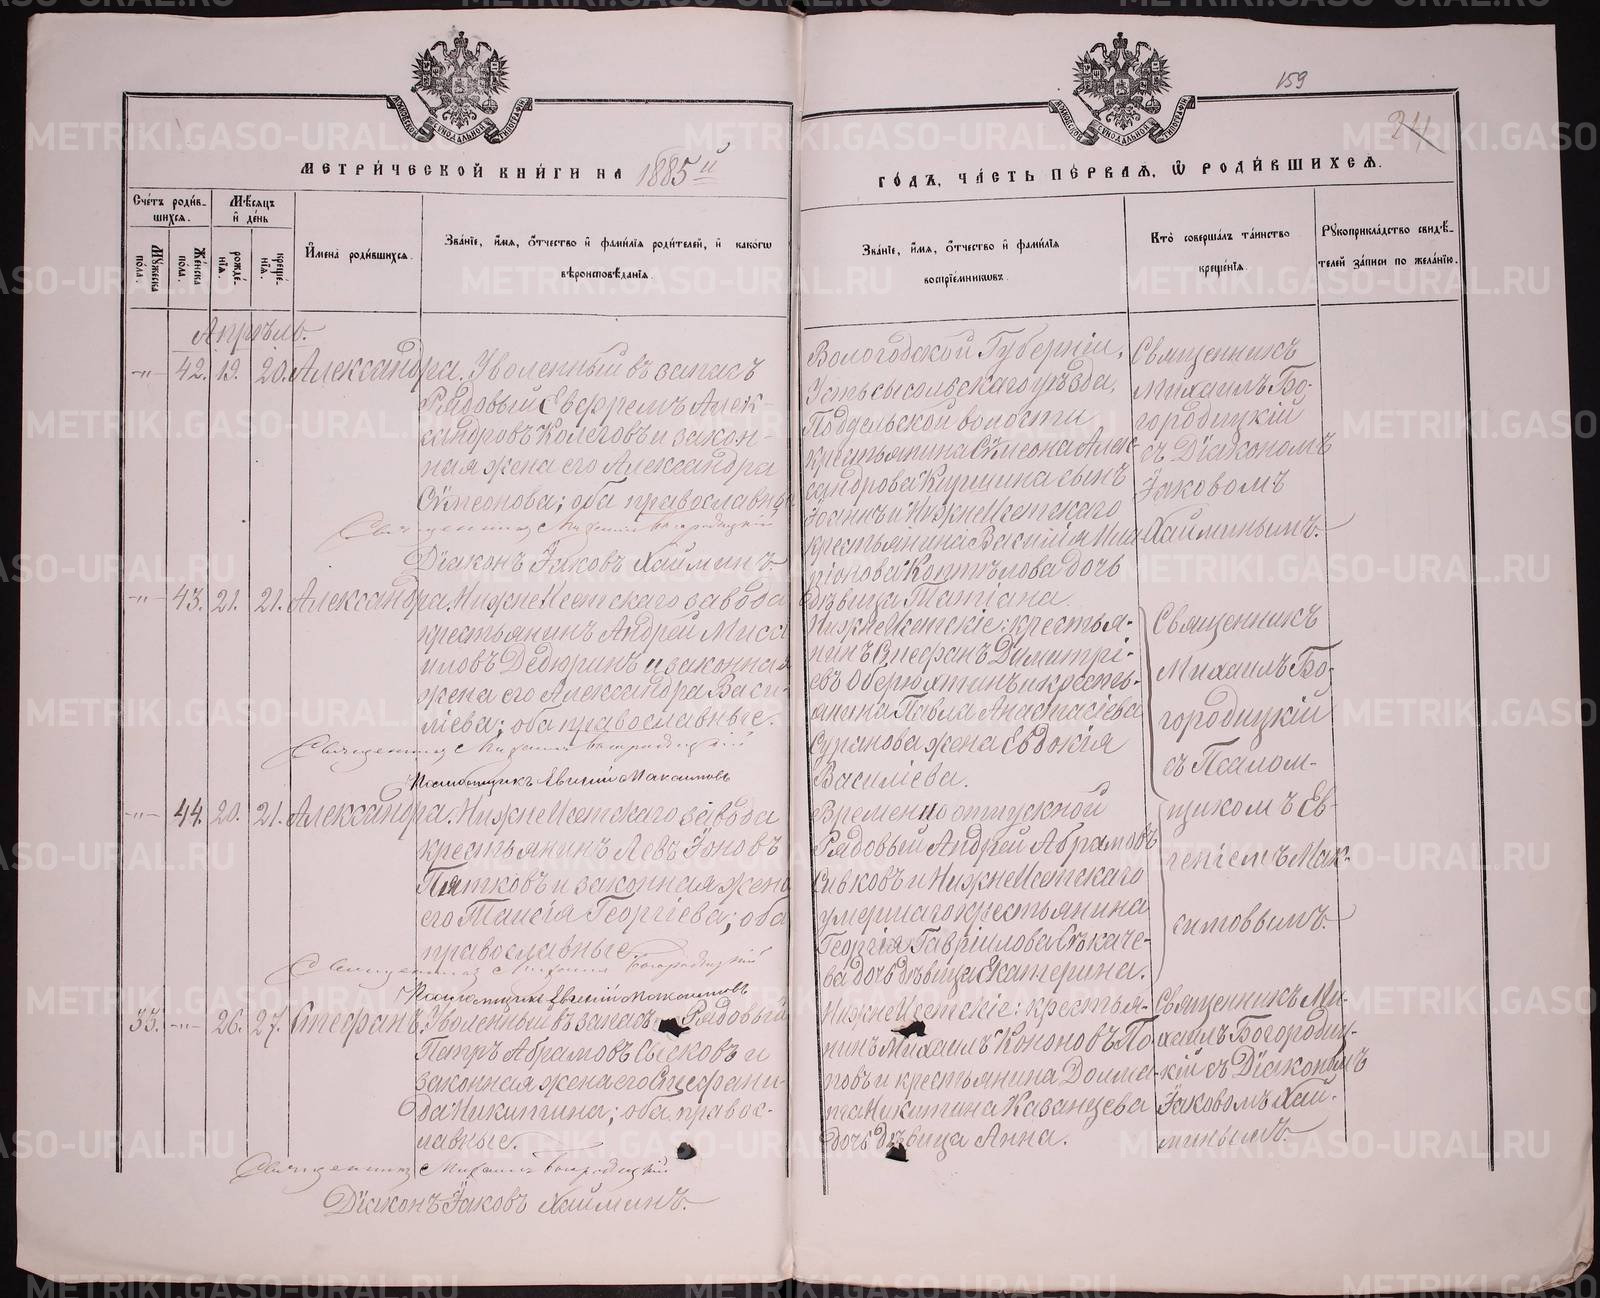 159
24
МЕТРИ́ЧЕСКОЙ КНИ́ГИ НА 1885й
ГО́ДЪ, ЧА́СТЬ ПЕ́РВАЯ, Ѡ РОДИ́ВШИХСЯ.
Сче́тъ роди́в-
шихся.
Мѣ́сяцъ
и҆ де́нь
Мꙋ́жеска
по́ла.
Же́нска
по́ла.
рожде́-
нїѧ.
креще́-
нїѧ.
И҆мена̀ роди́вшихся.
Зва́нїе, и҆́мя, ѻ҆́тчество и҆ фами́лїя роди́телей, и҆ како́гѡ
вѣроисповѣ́данїя.
Зва́нїе, и҆́мя, ѻ҆́тчество и҆ фами́лїя
воспрїе́мникѡвъ.
Кто̀ соверша́лъ та́инство
креще́нїя.
Рꙋкоприкла́дство свидѣ́-
телей за́писи по жела́нїю.
Апрѣль.
-"- 42. 19. 20. Александра. Уволенный въ запасъ
Рядовый Евфремъ Алек-
сандровъ Колеговъ и закон-
ная жена его Александра
Сѵмеонова; оба православны
Священник Михаилъ Богородицкій
Діаконъ Іаковъ Хайминъ
Вологодской Губерніи,
Устьсысольскаго уѣзда,
Подельской волости
крестьянина Сѵмеона Алек-
сандрова Киршина сынъ
Іоаннъ и НижнеИсетскаго
крестьянина Василія Ила-
ріонова Коптѣлова дочь
дѣвица Татіана.
Священникъ
Михаилъ Бо-
городицкій
съ Діакономъ
Іаковомъ
Хайминымъ.
-"- 43. 21. 21. Александра. НижнеИсетскаго завода
крестьянинъ Андрей Миса-
иловъ Дедюринъ и законная
жена его Александра Васи-
ліева; оба православные.
Священник Михаилъ Богородицкій
Псаломщикъ Евгеній Максимовъ
НижнеИсетскіе: крестья-
нинъ Стефанъ Димитрі-
евъ Оберюхтинъ и кресть-
янина Павла Анастасіева
Суранова жена Евдокія
Василіева.
Священникъ
Михаилъ Бо-
городицкій
съ Псалом-
щикомъ Ев-
геніемъ Мак-
симовымъ.
-"- 44. 20. 21. Александра. НижнеИсетскаго завода
крестьянинъ Левъ Іоновъ
Пятковъ и законная жена
его Таисія Георгіева; оба
православные.
Священник Михаилъ Богородицкій
Псаломщикъ Евгеній Максимовъ
Временно отпускной
Рядовый Андрей Абрамовъ
Сивковъ и НижнеИсетскаго
умершаго крестьянина
Георгія Гавріилова Сѣкаче-
ва дочь дѣвица Екатерина.
33. -"- 26. 27. Стефанъ. Уволенный въ запасъ Рядовый
Петръ Абрамовъ Сысковъ и
законная жена его Стефани-
да Никитина; оба правос-
лавные.
Священник Михаилъ Богородицкій
Діаконъ Іаковъ Хайминъ.
НижнеИсетскіе: крестья-
нинъ Михаилъ Кононовъ По-
повъ и крестьянина Долма-
та Никитина Казанцева
дочь дѣвица Анна.
Священникъ Ми-
хаилъ Богородиц-
кій съ Діакономъ
Іаковомъ Хай-
минымъ.
METRIKI.GASO-URAL.RU